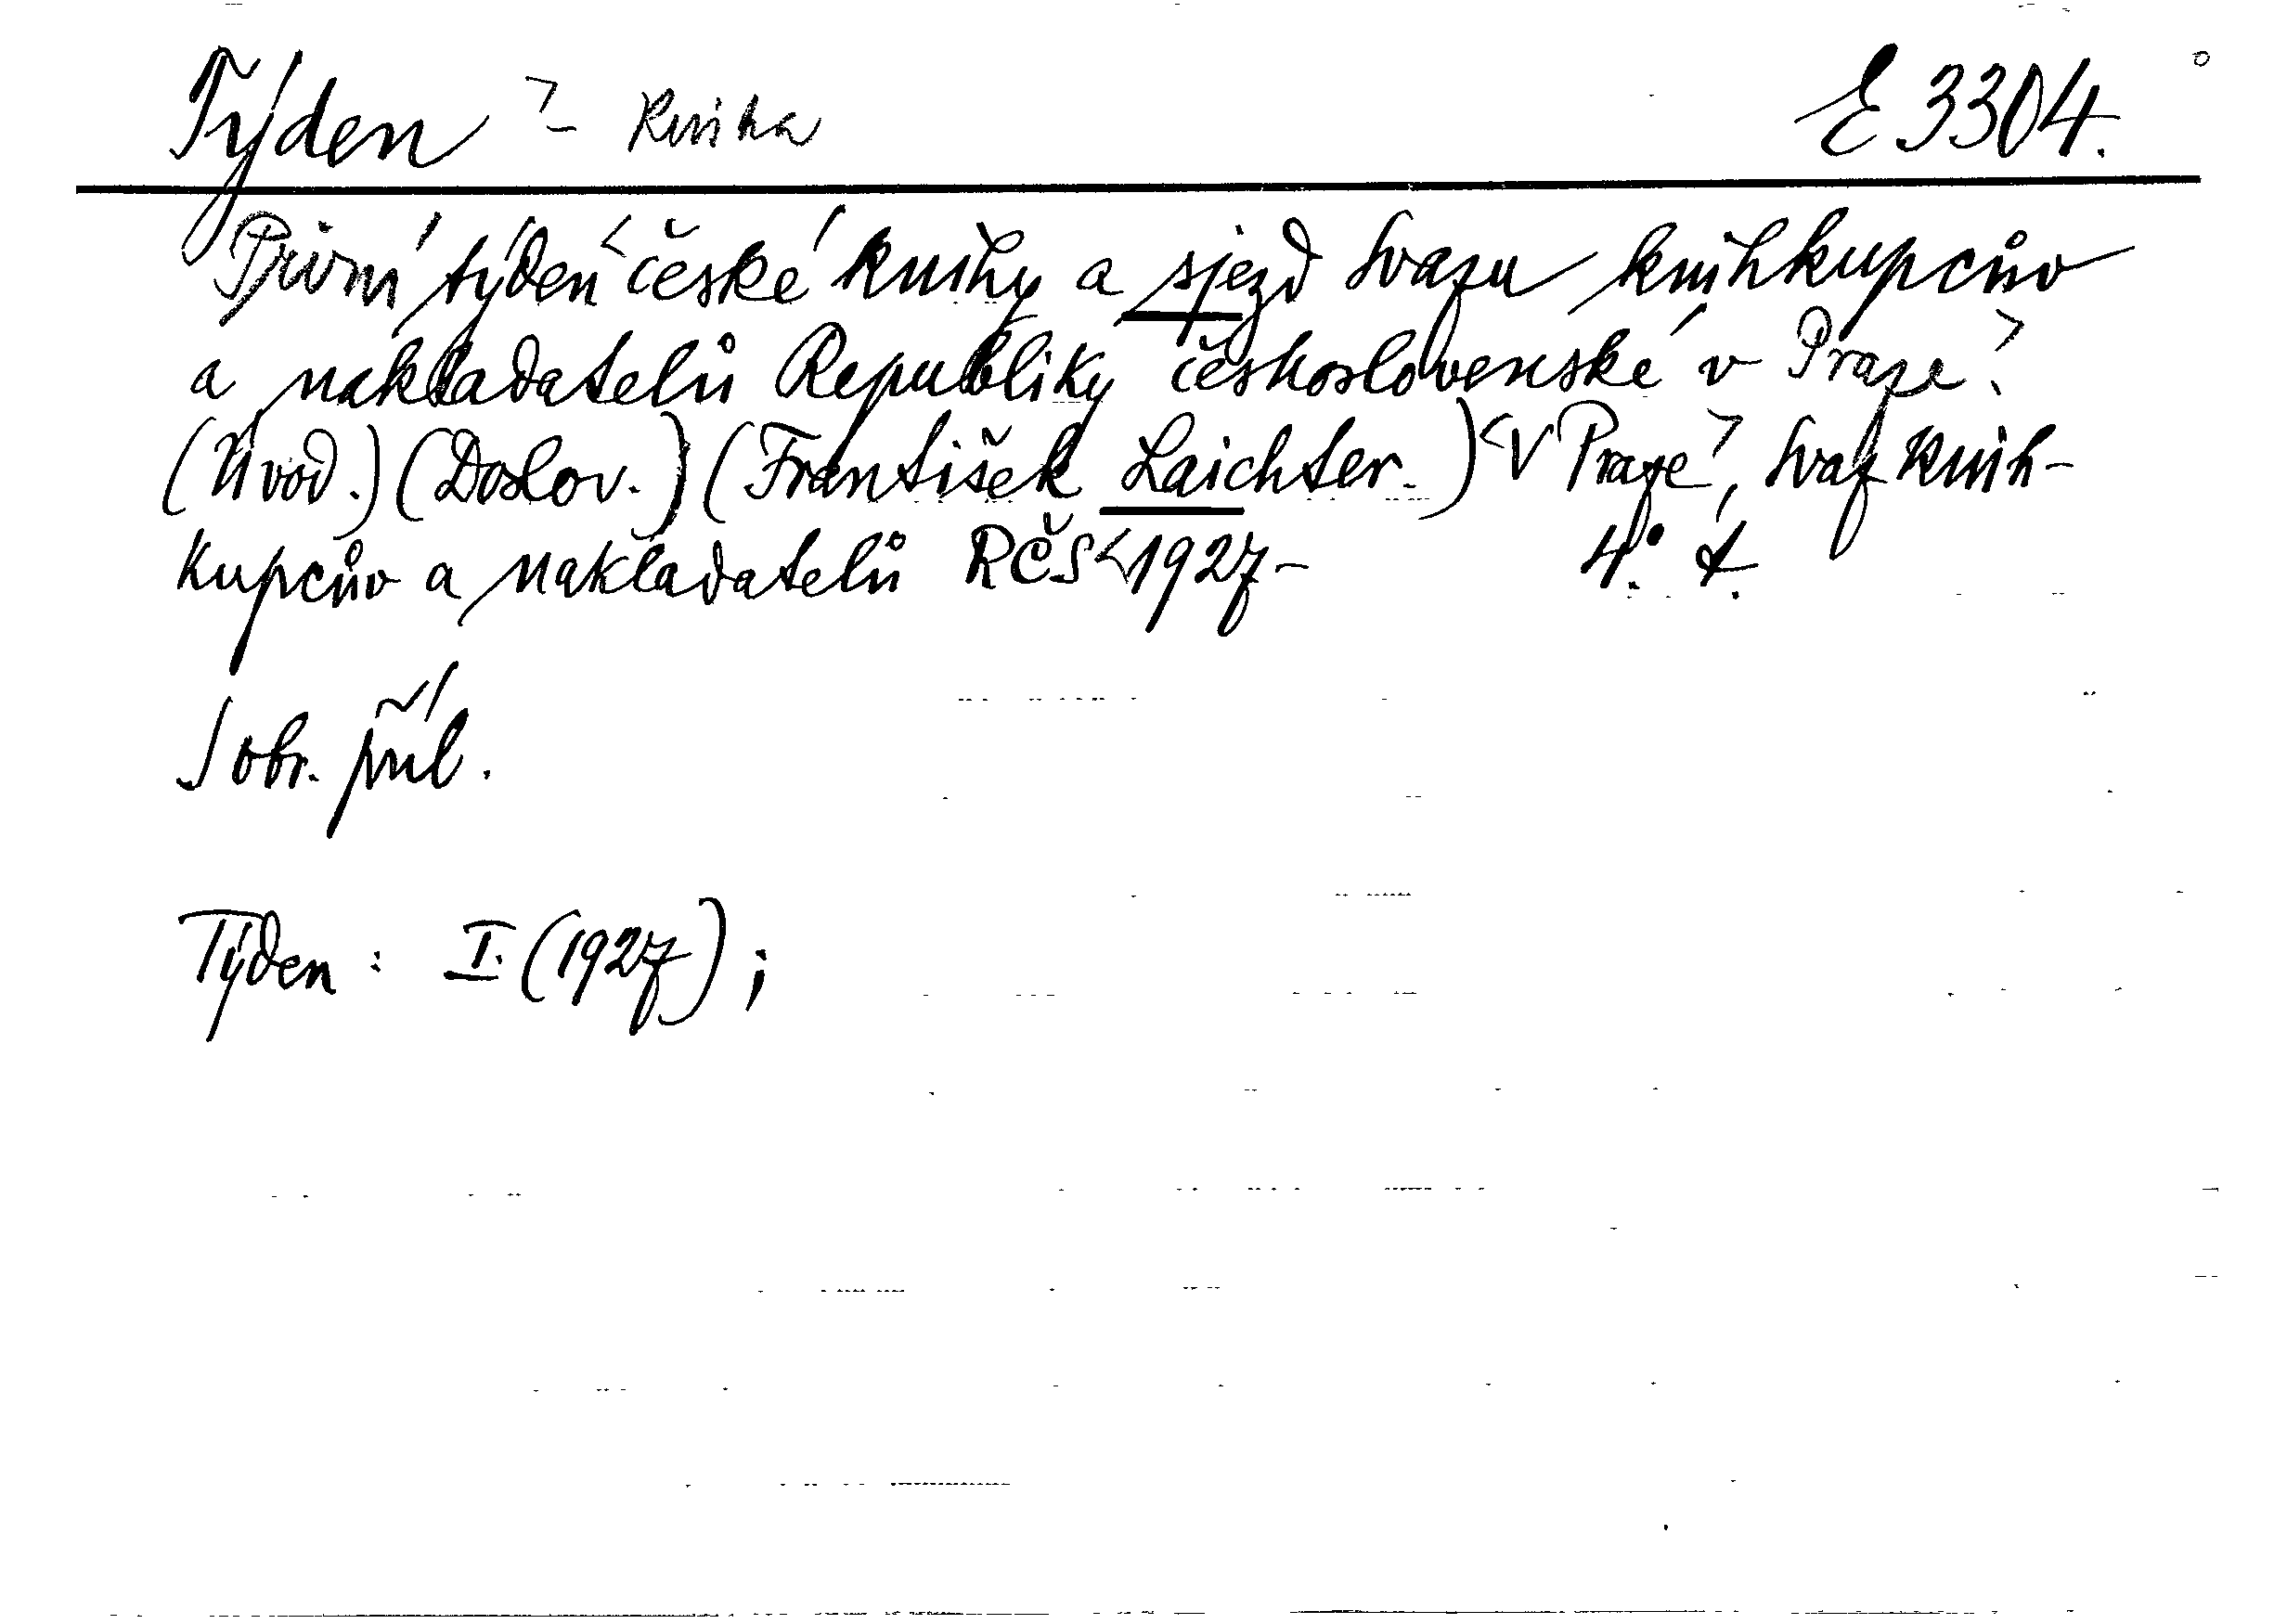 Týden > - Kniha E 3304.
První týden < české knihy a sjezd Svazu knihkupcův
a nakladatelů Republiky československé v Praze >.
(Úvod.) (Doslov.) (František Laichter.) < V Praze >, Svaz knih-
kupcův a nakladatelů RČS < 1927 - 4.°
S obr. příl.
Týden : I. (1927) ;